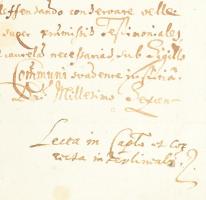 deffendando conservare velle
super præmissis testimoniales
necessarias sub Sigillo
Communi suadente iustitia
Millesimo Sexcen
Lecta in Capto et cor
recta in